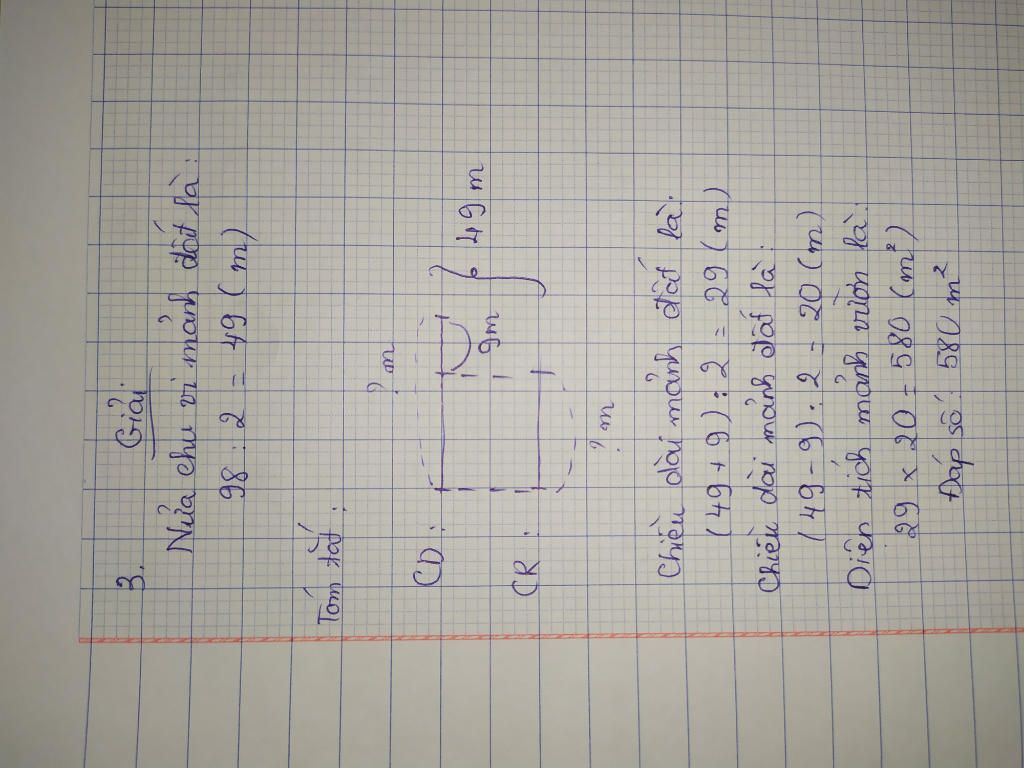 3. Giải
Nửa chu vi mảnh đất là:
98 : 2 = 49 (m)
Tóm tắt :
? m
CD :
9m
49 m
CR :
? m
Chiều dài mảnh đất là:
(49 + 9) : 2 = 29 (m)
Chiều dài mảnh đất là:
(49 - 9) : 2 = 20 (m)
Diện tích mảnh vườn là:
29 × 20 = 580 (m²)
Đáp số : 580 m²